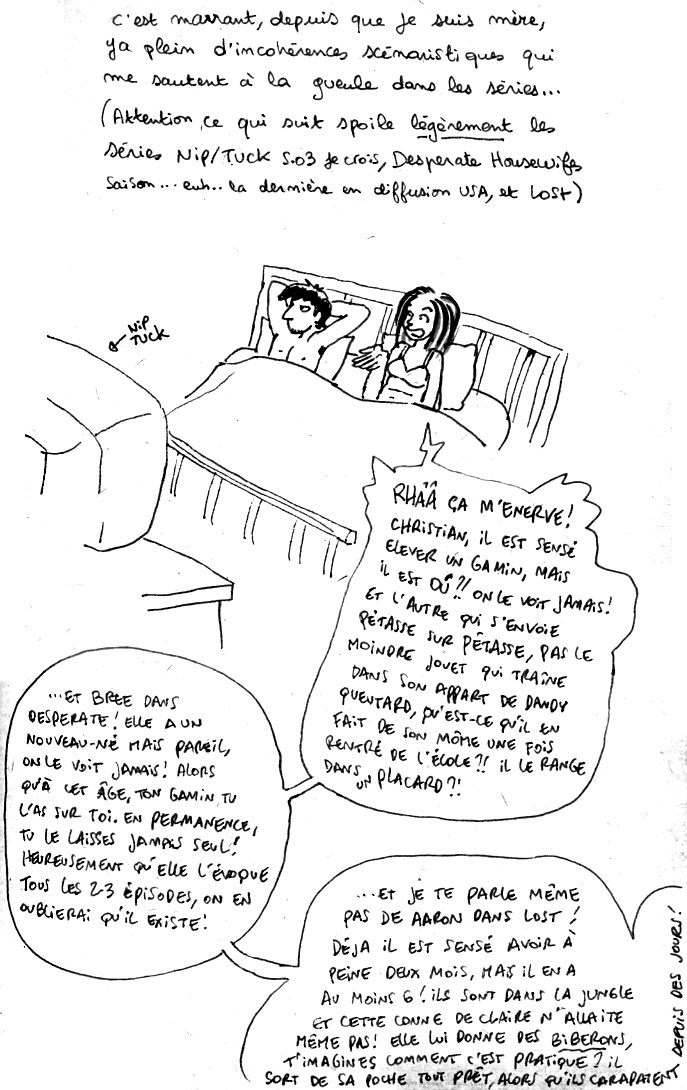 c'est marrant, depuis que je suis mère,
ya plein d'incohérences scénaristiques qui
me sautent à la gueule dans les séries...
(Attention, ce qui suit spoile légèrement les
séries Nip/Tuck S.03 je crois, Desperate Housewifes
saison... euh.. la dernière en diffusion USA, et LOST)
NIP
TUCK
RHÂÂ ÇA M'ENERVE!
CHRISTIAN, IL EST SENSÉ
ELEVER UN GAMIN, MAIS
IL EST OÛ?!! ON LE VOIT JAMAIS!
ET L'AUTRE QUI S'ENVOIE
PÉTASSE SUR PÉTASSE, PAS LE
MOINDRE JOUET QUI TRAÎNE
DANS SON APPART DE DANDY
QUEUTARD, QU'EST-CE QU'IL EN
FAIT DE SON MÔME UNE FOIS
RENTRÉ DE L'ÉCOLE?! IL LE RANGE
DANS UN PLACARD?!
...ET BREE DANS
DESPERATE! ELLE A UN
NOUVEAU-NÉ MAIS PAREIL,
ON LE VOIT JAMAIS! ALORS
QU'À CET ÂGE, TON GAMIN, TU
L'AS SUR TOI. EN PERMANENCE,
TU LE LAISSES JAMAIS SEUL!
HEUREUSEMENT QU'ELLE L'ÉVOQUE
TOUS LES 2-3 ÉPISODES, ON EN
OUBLIERAI QU'IL EXISTE!
...ET JE TE PARLE MÊME
PAS DE AARON DANS LOST!
DÉJA IL EST SENSÉ AVOIR À
PEINE DEUX MOIS, MAIS IL EN A
AU MOINS 6! ILS SONT DANS LA JUNGLE
ET CETTE CONNE DE CLAIRE N'ALLAITE
MÊME PAS! ELLE LUI DONNE DES BIBERONS,
T'IMAGINES COMMENT C'EST PRATIQUE? IL
SORT DE SA POCHE TOUT PRÊT, ALORS QU'ILS CARAPATENT
DEPUIS DES JOURS!